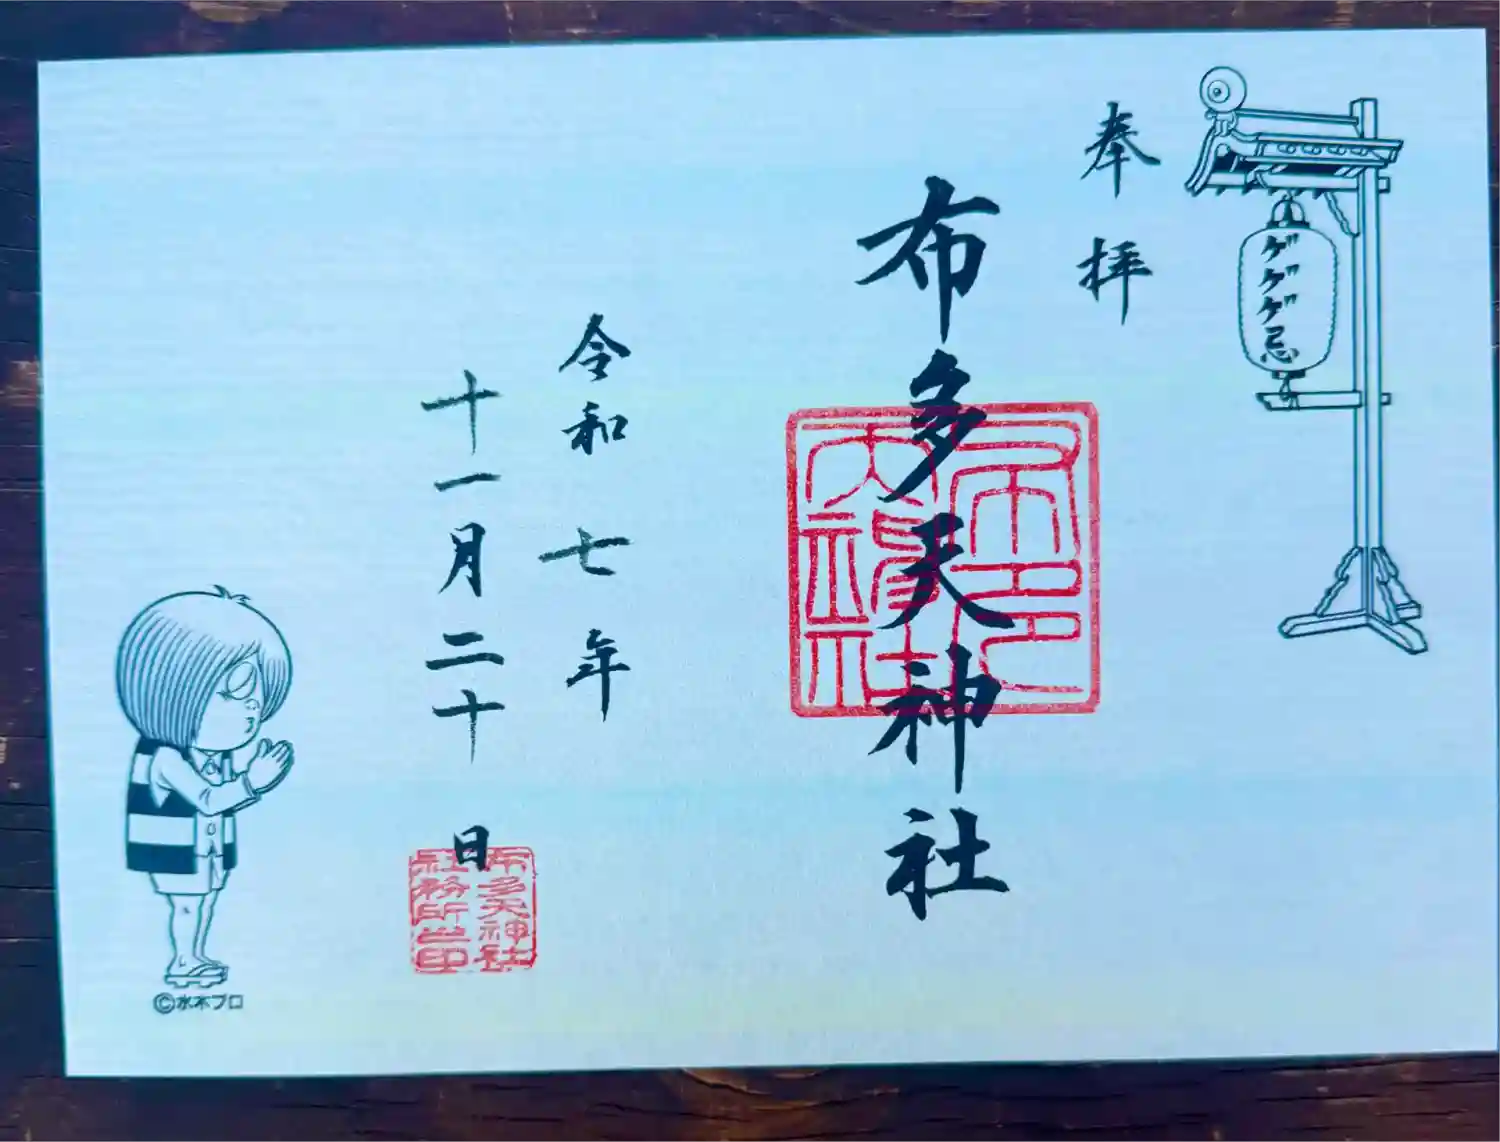 ゲゲゲ忌
奉拝
布多天神社
布多天神社
令和七年
十一月二十日
布多天神社
社務所之印
©水木プロ